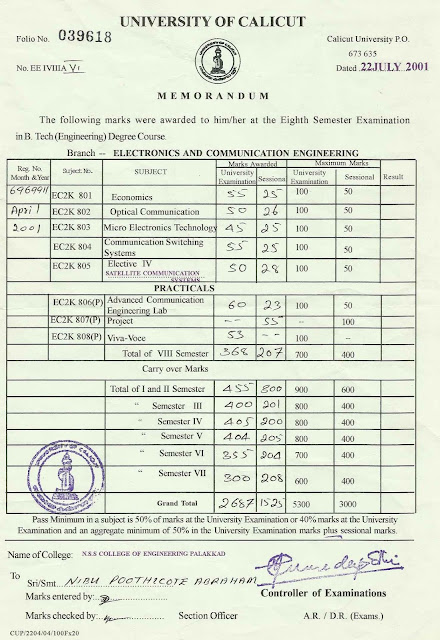 UNIVERSITY OF CALICUT
Folio No. 039618
Calicut University P.O.
673 635
No. EE IVIIIA VI
Dated 22 JULY 2001
MEMORANDUM
The following marks were awarded to him/her at the Eighth Semester Examination
in B. Tech (Engineering) Degree Course.
Branch -- ELECTRONICS AND COMMUNICATION ENGINEERING
Reg. No. Month & Year Subject. No. SUBJECT Marks Awarded Maximum Marks Result
University Examination Sessional University Examination Sessional
EC2K 801 Economics 55 25 100 50
April EC2K 802 Optical Communication 50 26 100 50
2001 EC2K 803 Micro Electronics Technology 45 25 100 50
EC2K 804 Communication Switching Systems 55 25 100 50
EC2K 805 Elective IV 50 28 100 50
SATELLITE COMMUNICATION SYSTEMS
PRACTICALS
EC2K 806(P) Advanced Communication Engineering Lab 60 23 100 50
EC2K 807(P) Project -- 55 -- 100
EC2K 808(P) Viva-Voce 53 -- 100 --
Total of VIII Semester 368 207 700 400
Carry over Marks
Total of I and II Semester 455 300 900 600
" Semester III 400 201 800 400
" Semester IV 405 200 800 400
" Semester V 404 205 800 400
" Semester VI 355 204 700 400
" Semester VII 300 208 600 400
Grand Total 2687 1525 5300 3000
Pass Minimum in a subject is 50% of marks at the University Examination or 40% marks at the University
Examination and an aggregate minimum of 50% in the University Examination marks plus sessional marks.
Name of College: N.S.S COLLEGE OF ENGINEERING PALAKKAD
To
Sri/Smt. NIBU POOTHICOTE ABRAHAM
Marks entered by:
Controller of Examinations
Marks checked by:
Section Officer
A.R. / D.R. (Exams.)
CUP/2204/04/100Fx20